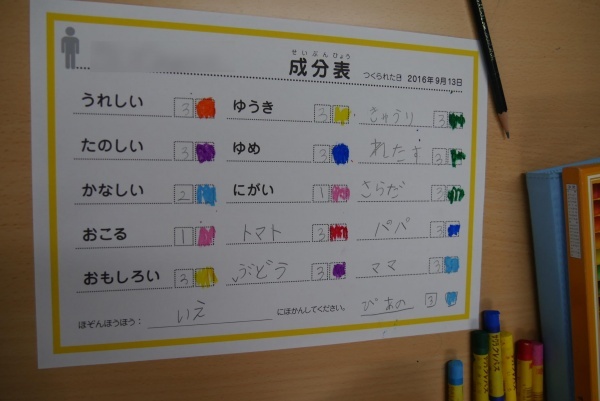 せいぶんひょう
成分表 つくられた日 2016年9月13日
うれしい 3 ゆうき 3 きゅうり 3
たのしい 3 ゆめ 3 れたす 3
かなしい 2 にがい 1 さらだ 3
おこる 1 トマト 3 パパ 3
おもしろい 3 ぶどう 3 ママ 3
ほぞんほうほう： いえ にほかんしてください。 ぴあの 3